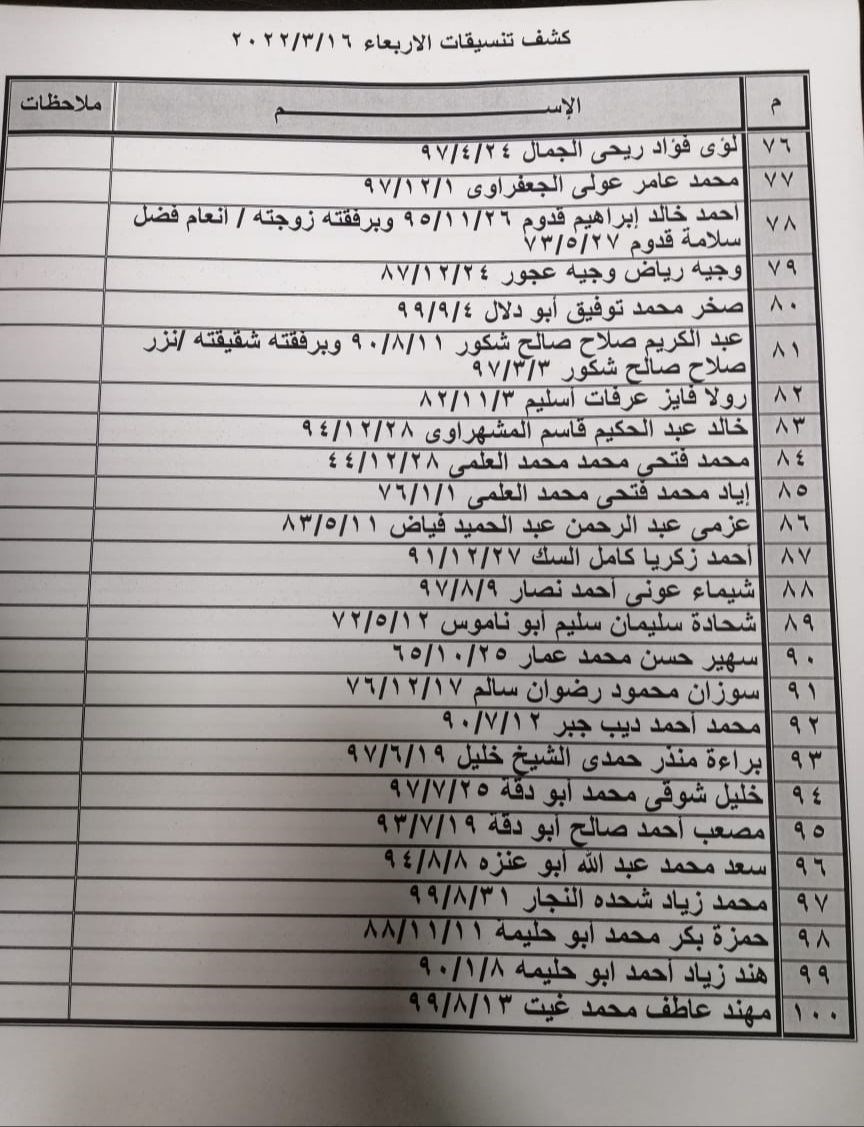 كشف تنسيقات الاربعاء ٢٠٢٢/٣/١٦
م الإســـــــــــــم ملاحظات
٧٦ لؤى فؤاد ريحى الجمال ٩٧/٤/٢٤
٧٧ محمد عامر عولى الجعفراوى ٩٧/١٢/١
٧٨ احمد خالد إبراهيم قدوم ٩٥/١١/٢٦ وبرفقته زوجته / أنعام فضل
سلامة قدوم ٧٣/٥/٢٧
٧٩ وجيه رياض وجيه عجور ٨٧/١٢/٢٤
٨٠ صخر محمد توفيق أبو دلال ٩٩/٩/٤
٨١ عبد الكريم صلاح صالح شكور ٩٠/٨/١١ وبرفقته شقيقته /نزر
صلاح صالح شكور ٩٧/٣/٣
٨٢ رولا فايز عرفات أسليم ٨٢/١١/٣
٨٣ خالد عبد الحكيم قاسم المشهراوى ٩٤/١٢/٢٨
٨٤ محمد فتحي محمد محمد العلمى ٤٤/١٢/٢٨
٨٥ إياد محمد فتحى محمد العلمى ٧٦/١/١
٨٦ عزمى عبد الرحمن عبد الحميد فياض ٨٣/٥/١١
٨٧ أحمد زكريا كامل السك ٩١/١٢/٢٧
٨٨ شيماء عونى أحمد نصار ٩٧/٨/٩
٨٩ شحادة سليمان سليم أبو ناموس ٧٢/٥/١٢
٩٠ سهير حسن محمد عمار ٦٥/١٠/٢٥
٩١ سوزان محمود رضوان سالم ٧٦/١٢/١٧
٩٢ محمد أحمد ديب جبر ٩٠/٧/١٢
٩٣ براءة منذر حمدى الشيخ خليل ٩٧/٦/١٩
٩٤ خليل شوقى محمد أبو دقة ٩٧/٧/٢٥
٩٥ مصعب أحمد صالح أبو دقة ٩٣/٧/١٩
٩٦ سعد محمد عبد الله أبو عنزه ٩٤/٨/٨
٩٧ محمد زياد شحده النجار ٩٩/٨/٣١
٩٨ حمزة بكر محمد أبو حليمة ٨٨/١١/١١
٩٩ هند زياد أحمد ابو حليمه ٩٠/١/٨
١٠٠ مهند عاطف محمد غيت ٩٩/٨/١٣